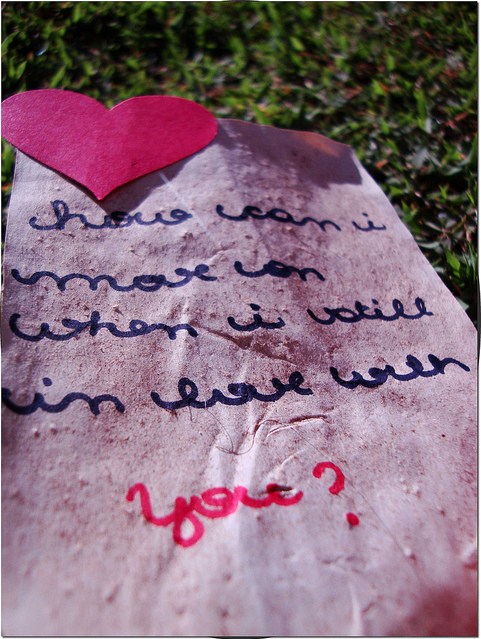 how can i
move on
when i still
in love with
you?